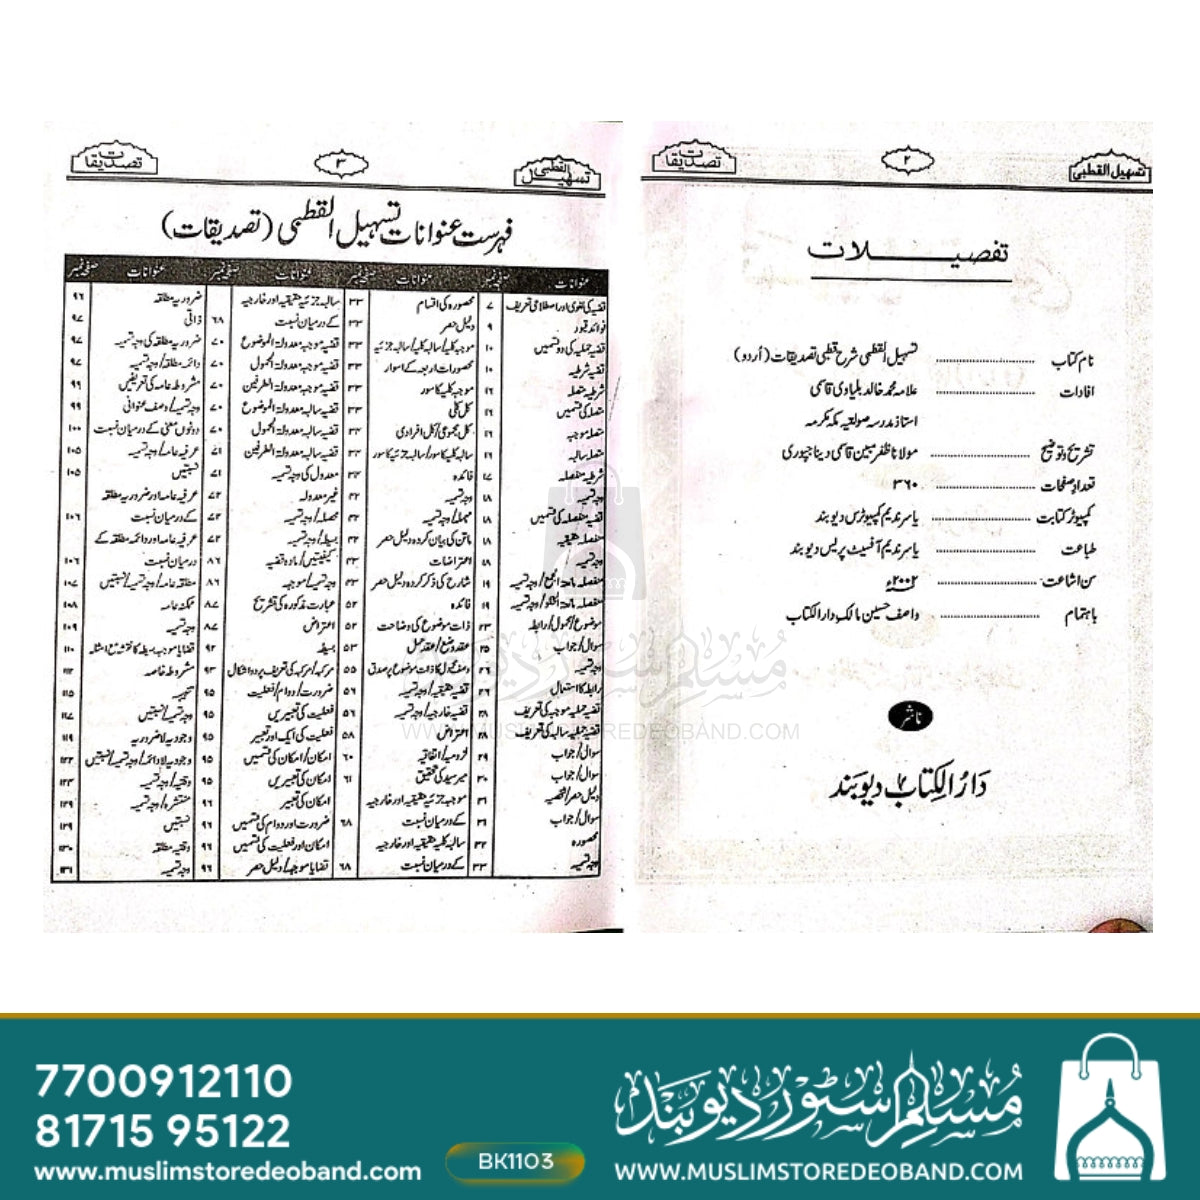 تسہیل القطبی
۲
تصدیقات
تفصیلات
نام کتاب ........................ تسہیل القطبی شرح قطبی تصدیقات (اُردو)
افادات ........................ علامہ محمد خالد بلیاوی قاسمی
استاذ مدرسہ صولتیہ مکہ مکرمہ
تشریح و توضیح ........................ مولانا ظفر مبین قاسمی دیناجپوری
تعداد صفحات ........................ ۳۶۰
کمپیوٹر کتابت ........................ یاسر ندیم کمپیوٹرس دیوبند
طباعت ........................ یاسر ندیم آفسیٹ پریس دیوبند
سن اشاعت ........................ ۲۰۰۲ء
باہتمام ........................ واصف حسین مالک دارالکتاب
ناشر
دَارُ الکِتَاب دیوبَند
تسہیل القطبی
۳
تصدیقات
فہرست عنوانات تسہیل القطبی (تصدیقات)
عنوانات صفحہ نمبر عنوانات صفحہ نمبر عنوانات صفحہ نمبر عنوانات صفحہ نمبر
قضیہ کی لغوی اور اصطلاحی تعریف ۷ محصورہ کی اقسام ۳۳ سالبہ جزئیہ حقیقیہ اور خارجیہ ضروریہ مطلقہ ۹۶
فوائد قیود ۹ دلیل حصر ۳۳ کے درمیان نسبت ۶۸ ذاتی ۹۷
قضیہ حملیہ کی دو قسمیں ۱۰ موجبہ کلیہ/سالبہ کلیہ/سالبہ جزئیہ ۳۳ قضیہ موجبہ معدولۃ الموضوع ۷۰ ضروریہ مطلقہ کی وجہ تسمیہ ۹۷
قضیہ شرطیہ ۱۰ محصورات اربعہ کے اسوار ۳۳ قضیہ موجبہ معدولۃ المحمول ۷۰ دائمہ مطلقہ/وجہ تسمیہ ۹۷
شرطیہ متصلہ ۱۶ موجبہ کلیہ کا سور ۳۳ قضیہ موجبہ معدولۃ الطرفین ۷۰ مشروطہ عامہ کی تعریفیں ۹۹
متصلہ کی قسمیں ۱۶ کل کلی ۳۳ قضیہ سالبہ معدولۃ الموضوع ۷۰ وجہ تسمیہ/وصف عنوانی ۹۹
متصلہ موجبہ ۱۶ کل مجموعی/کل افرادی ۳۳ قضیہ سالبہ معدولۃ المحمول ۷۰ دونوں معنی کے درمیان نسبت ۱۰۰
متصلہ سالبہ ۱۶ سالبہ کلیہ کا سور/سالبہ جزئیہ کا سور ۳۳ قضیہ سالبہ معدولۃ الطرفین ۷۱ عرفیہ عامہ/وجہ تسمیہ ۱۰۵
شرطیہ منفصلہ ۱۷ فائدہ معدول کی وجہ تسمیہ ۷۱ نسبتیں ۱۰۵
وجہ تسمیہ ۱۸ وجہ تسمیہ ۴۲ غیر معدولہ ۷۲ عرفیہ عامہ اور ضروریہ مطلقہ
قضیہ منفصلہ کی قسمیں ۱۸ مہملہ/وجہ تسمیہ ۴۲ محصلہ/وجہ تسمیہ ۷۲ کے درمیان نسبت ۱۰۶
منفصلہ حقیقیہ ۱۸ ماتن کی بیان کردہ دلیل حصر ۴۲ بسیطہ/وجہ تسمیہ ۷۲ عرفیہ عامہ اور دائمہ مطلقہ کے
وجہ تسمیہ ۱۸ اعتراضات ۴۲ کیفیتیں/مادہ قضیہ ۸۶ درمیان نسبت ۱۰۶
منفصلہ مانعۃ الجمع/وجہ تسمیہ ۱۹ شارح کی ذکر کردہ دلیل حصر ۴۳ وجہ تسمیہ/موجہہ ۸۶ مطلقہ عامہ/وجہ تسمیہ/نسبتیں ۱۰۷
منفصلہ مانعۃ الخلو/وجہ تسمیہ ۱۹ فائدہ ۵۲ عبارت مذکورہ کی تشریح ۸۷ ممکنہ عامہ ۱۰۸
موضوع/محمول/رابطہ ۲۳ ذات موضوع کی وضاحت ۵۲ اعتراض ۸۷ وجہ تسمیہ ۱۰۹
سوال/جواب ۲۵ عقد وضع/عقد حمل ۵۳ بسیطہ ۹۲ قضایا موجہہ بسیطہ کا نقشہ مع امثلہ ۱۱۰
وجہ تسمیہ ۲۶ وصف محمول کا ذات موضوع پر صدق ۵۵ مرکبہ/مرکبہ کی تعریف پر دو اشکال ۹۳ مشروطہ خاصہ ۱۱۲
رابطہ کا استعمال ۲۶ قضیہ حقیقیہ/وجہ تسمیہ ۵۶ ضرورت/دوام/فعلیت ۹۵ تنبیہ ۱۱۵
قضیہ حملیہ موجبہ کی تعریف ۲۸ قضیہ خارجیہ/وجہ تسمیہ ۵۶ فعلیت کی تعبیریں ۹۵ وجہ تسمیہ/نسبتیں ۱۱۷
قضیہ حملیہ سالبہ کی تعریف ۲۸ اعتراض ۵۸ فعلیت کی ایک اور تعبیر ۹۵ وجودیہ لاضروریہ ۱۱۹
سوال/جواب ۲۹ لزومیہ/اتفاقیہ ۶۰ امکان/امکان کی قسمیں ۹۵ وجودیہ لادائمہ/وجہ تسمیہ/نسبتیں ۱۲۲
سوال/جواب ۳۰ میر سید کی تحقیق ۶۱ امکان کی تعبیریں ۹۵ وقتیہ/وجہ تسمیہ ۱۲۳
دلیل حصر/شخصیہ ۳۱ موجبہ جزئیہ حقیقیہ اور خارجیہ امکان کی تعبیر ۹۶ منتشرہ/وجہ تسمیہ ۱۲۹
سوال/جواب ۳۱ کے درمیان نسبت ۶۸ ضرورت اور دوام کی قسمیں ۹۶ نسبتیں ۱۲۹
محصورہ ۳۲ سالبہ کلیہ حقیقیہ اور خارجیہ امکان اور فعلیت کی قسمیں ۹۶ وقتیہ مطلقہ ۱۳۰
وجہ تسمیہ ۳۳ کے درمیان نسبت ۶۸ قضایا موجہہ/دلیل حصر ۹۶ وجہ تسمیہ ۱۳۱
مُسلم سٹور دیوبند
WWW.MUSLIMSTOREDEOBAND.COM
7700912110
81715 95122
www.muslimstoredeoband.com
BK1103
مُسلم سٹور دیوبند
WWW.MUSLIMSTOREDEOBAND.COM